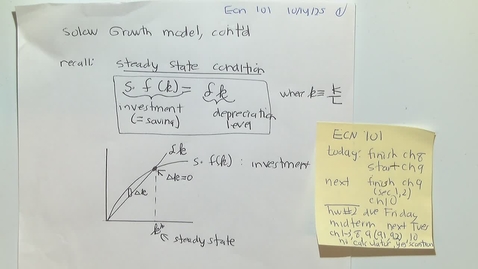 Ecn 101 10/14/25
Solow Growth model, cont'd
recall: steady state condition
s. f(k) = δk where k ≡ K/L
investment (= saving)
depreciation level
δk
s. f(k) : investment
Δk=0
Δk
k*
steady state
ECN 101
today: finish ch 8
start ch 9
next finish ch 9
(sec 1, 2)
ch 10
hw#2 due Friday
midterm next Tuer
ch 1-3, 8, 9 (9.1, 9.2), 10
no calculator, yes